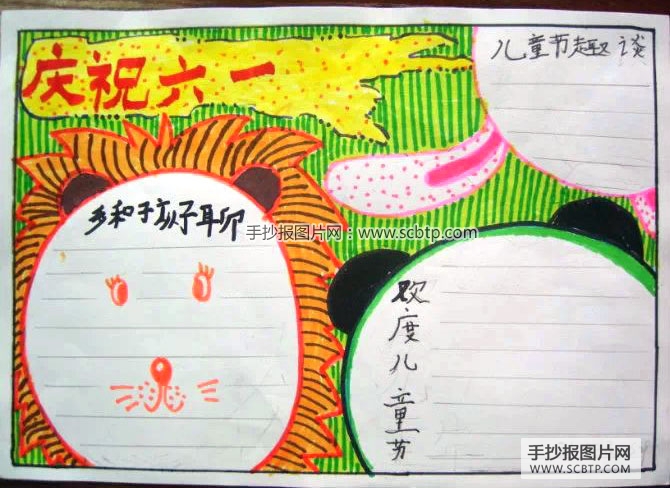 庆祝六一
儿童节趣谈
多和孩子聊聊
手抄报图片网：www.scbtp.com
欢度儿童节
手抄报图片网
WWW.SCBTP.COM